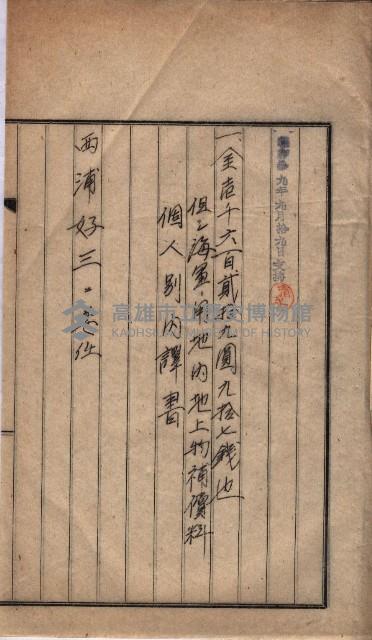 九年九月拾九日
一、金壱千六百貳拾九圓九拾七錢也
但シ海軍用地内地上物補償料
個人別内譯書
西浦好三
高雄市立歷史博物館
KAOHSIUNG MUSEUM OF HISTORY